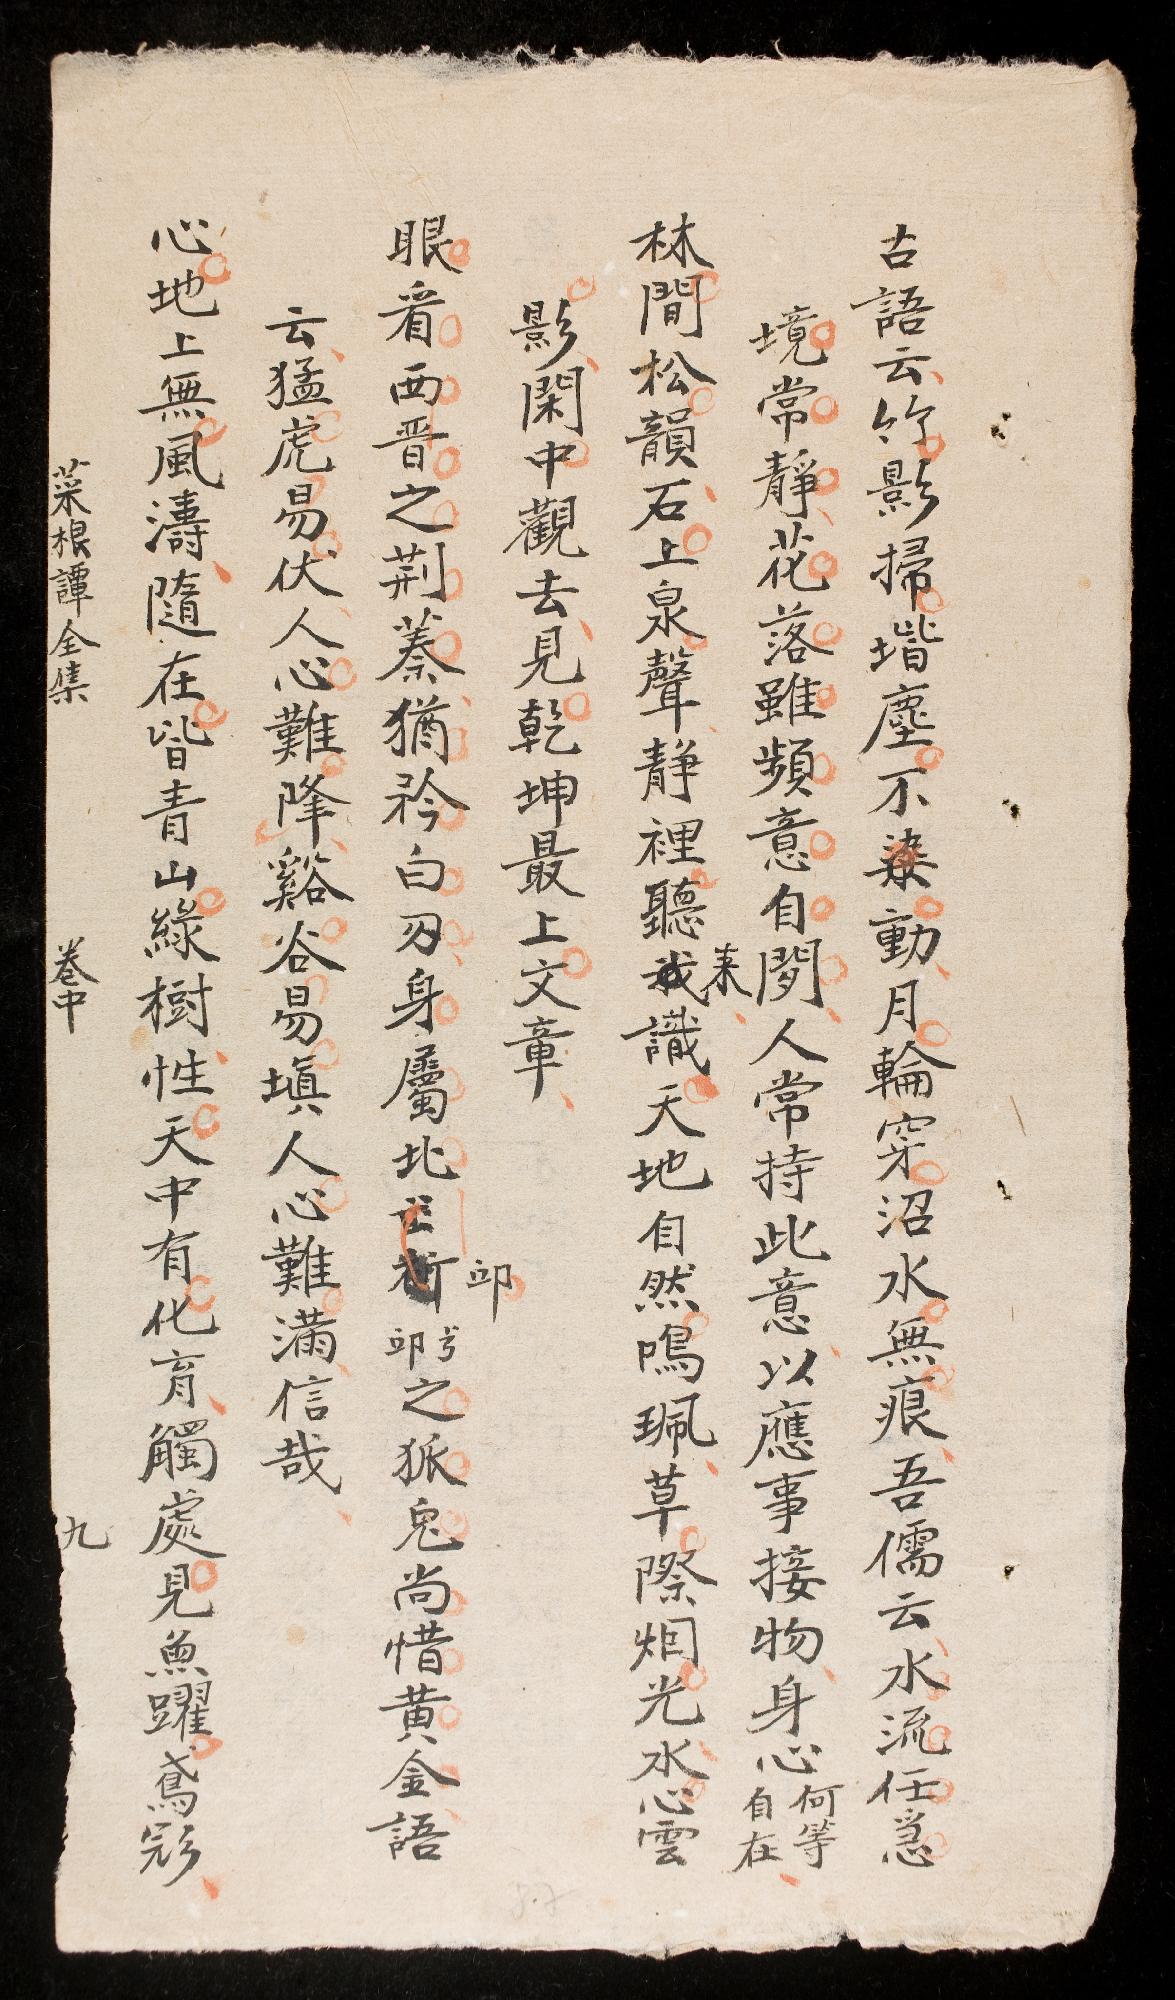 古語云竹影掃堦塵不染動月輪穿沼水無痕吾儒云水流任急
境常靜花落雖頻意自閑人常持此意以應事接物身心何等自在
林間松韻石上泉聲靜裡聽來識天地自然鳴珮草際烟光水心雲
影閑中觀去見乾坤最上文章
眼看西晋之荆蓁猶矜白刃身屬北邙之狐兔尚惜黄金語
云猛虎易伏人心難降谿谷易塡人心難滿信哉
心地上無風濤隨在皆青山綠樹性天中有化育觸處見魚躍鳶
菜根譚全集 卷中 九